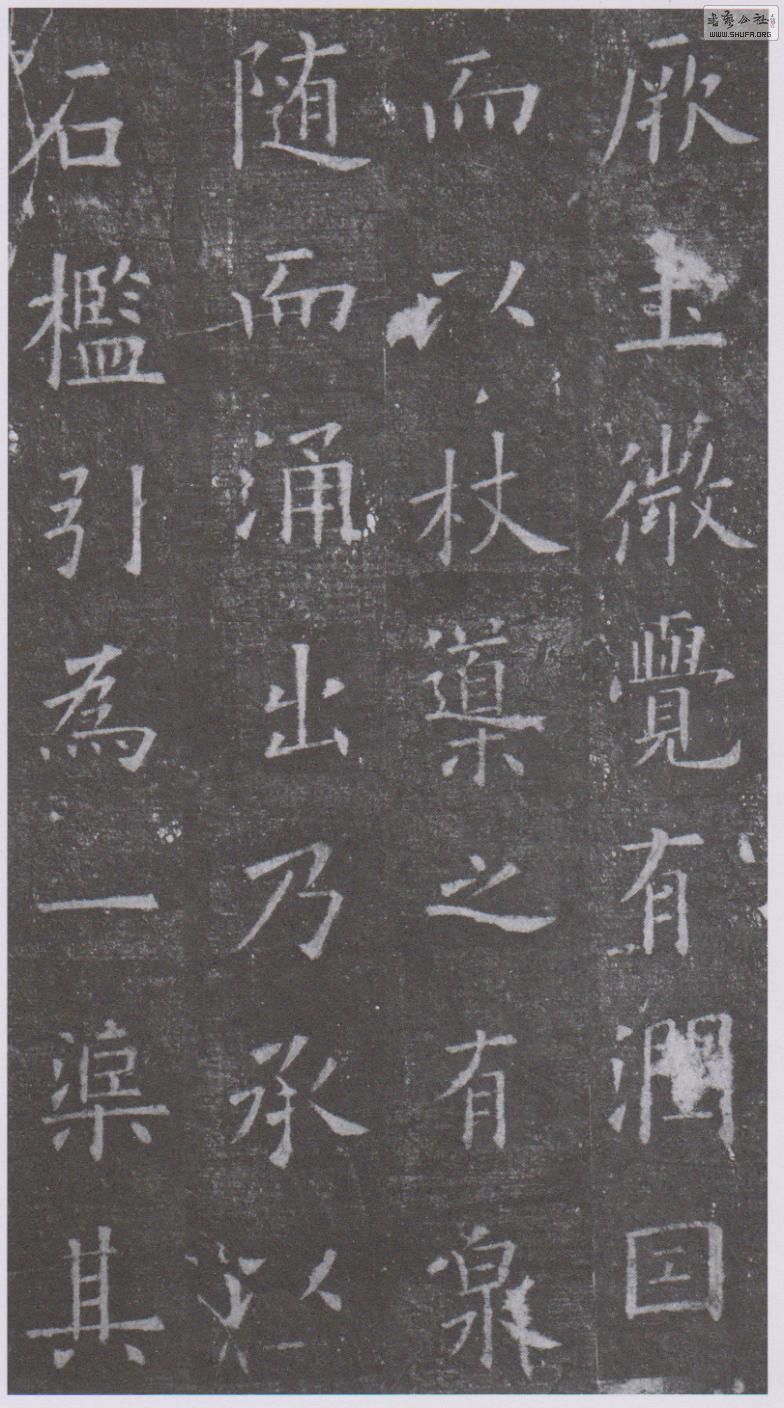 厥土微覺有潤因
而以杖導之有泉
随而涌出乃承以
石檻引為一渠其
書藝公社
WWW.SHUFA.ORG